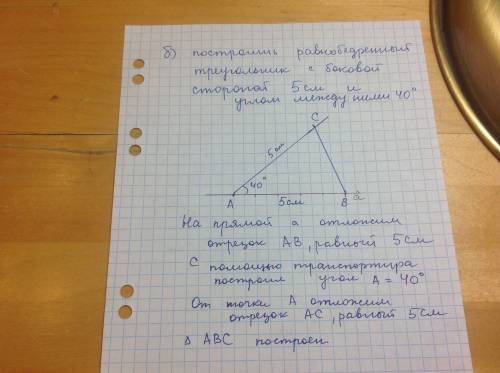 б) построить равнобедренный
треугольник с боковой
стороной 5см и
углом между ними 40°
C
5см
40°
A 5см B a
На прямой а отложим
отрезок AB, равный 5см
С помощью транспортира
построим угол A = 40°
От точки А отложим
отрезок AC, равный 5см
Δ ABC построен